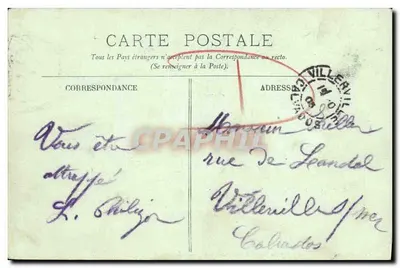 CARTE POSTALE
Tous les Pays étrangers n'acceptent pas la Correspondance au recto.
(Se renseigner à la Poste).
CORRESPONDANCE
ADRESSE
VILLERVILLE
CALVADOS
Vous êtes
attrapé
L.
rue de
Villerville s/mer
Calvados